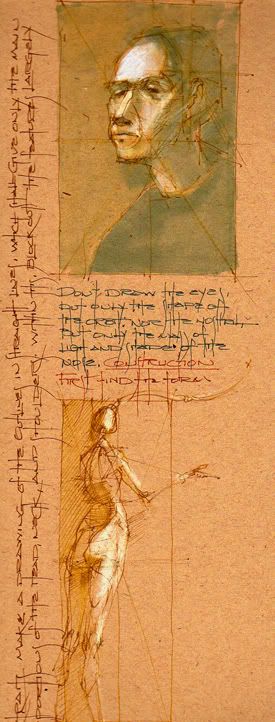 DON'T DRAW THE EYES,
BUT ONLY THE SHAPE OF
THE ORBIT, NOR THE NOSTRIL,
BUT ONLY THE MASS OF
LIGHT AND SHADE OF THE
NOSE, CONSTRUCTION
FIRST FIND THE FORM
MAKE A DRAWING OF THE OUTLINE IN STRAIGHT LINES, WHICH SHALL GIVE ONLY THE MAIN
PORTIONS OF THE HEAD, NECK, AND SHOULDERS, WITHIN THIS BLOCK OUT THE FEATURES LARGELY